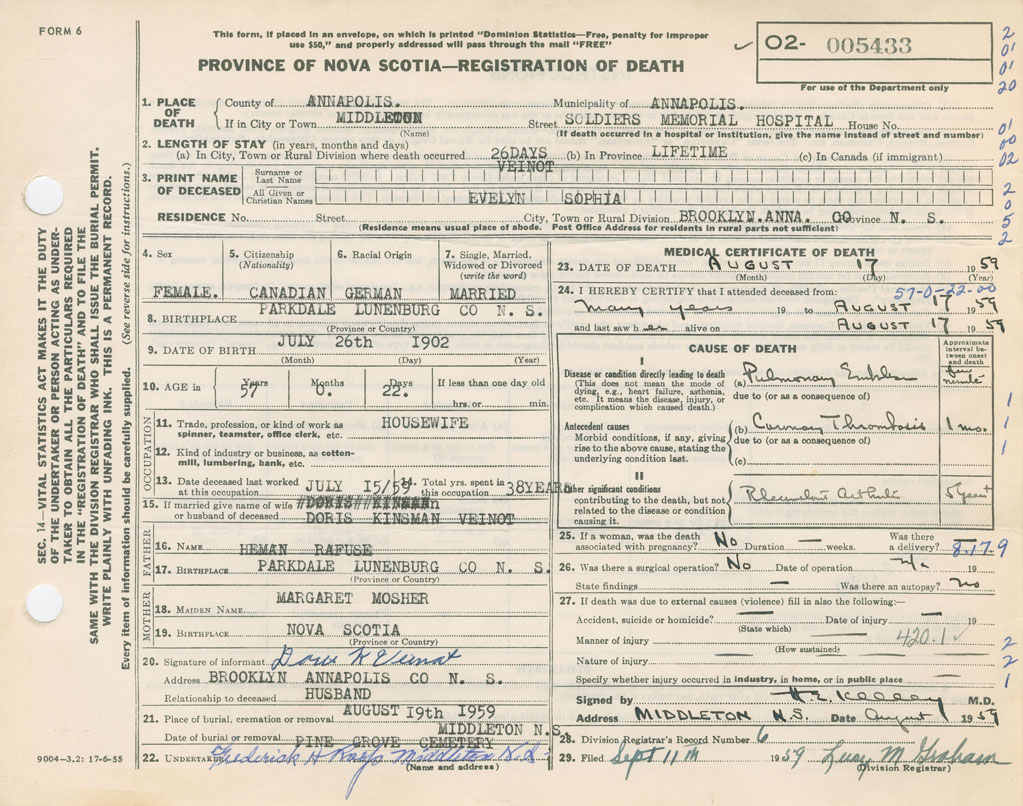 FORM 6
This form, if placed in an envelope, on which is printed "Dominion Statistics—Free, penalty for improper
use $50," and properly addressed will pass through the mail "FREE"
PROVINCE OF NOVA SCOTIA—REGISTRATION OF DEATH
O2- 005433
For use of the Department only
2
01
01
20
01
00
02
2
0
5
2
1. PLACE OF DEATH
County of ANNAPOLIS. Municipality of ANNAPOLIS.
If in City or Town MIDDLETON Street SOLDIERS MEMORIAL HOSPITAL House No.
(Name) (If death occurred in a hospital or institution, give the name instead of street and number)
2. LENGTH OF STAY (in years, months and days)
(a) In City, Town or Rural Division where death occurred 26DAYS (b) In Province LIFETIME (c) In Canada (if immigrant)
3. PRINT NAME OF DECEASED
Surname or Last Name VEINOT
All Given or Christian Names EVELYN SOPHIA
RESIDENCE No. Street City, Town or Rural Division BROOKLYN.ANNA. CO Province N. S.
(Residence means usual place of abode. Post Office Address for residents in rural parts not sufficient)
4. Sex
FEMALE.
5. Citizenship (Nationality)
CANADIAN
6. Racial Origin
GERMAN
7. Single, Married, Widowed or Divorced (write the word)
MARRIED
8. BIRTHPLACE PARKDALE LUNENBURG CO N. S.
(Province or Country)
9. DATE OF BIRTH JULY 26th 1902
(Month) (Day) (Year)
10. AGE in Years 57 Months 0. Days 22. If less than one day old
hrs. or min.
OCCUPATION
11. Trade, profession, or kind of work as HOUSEWIFE
spinner, teamster, office clerk, etc.
12. Kind of industry or business, as cotton-
mill, lumbering, bank, etc.
13. Date deceased last worked at this occupation JULY 15/59
14. Total yrs. spent in this occupation 38YEARS
15. If married give name of wife or husband of deceased
DORIS KINSMAN VEINOT
FATHER
16. NAME HEMAN RAFUSE
17. BIRTHPLACE PARKDALE LUNENBURG CO N. S.
(Province or Country)
MOTHER
18. MAIDEN NAME MARGARET MOSHER
19. BIRTHPLACE NOVA SCOTIA
(Province or Country)
20. Signature of informant Doris K Veinot
Address BROOKLYN ANNAPOLIS CO N. S.
Relationship to deceased HUSBAND
21. Place of burial, cremation or removal AUGUST 19th 1959
MIDDLETON N.S.
Date of burial or removal PINE GROVE CEMETERY
22. UNDERTAKER Frederick H Middleton N.S.
(Name and address)
9004—3.2: 17-6-55
MEDICAL CERTIFICATE OF DEATH
23. DATE OF DEATH AUGUST 17 1959
(Month) (Day) (Year)
57-0-22-00
24. I HEREBY CERTIFY that I attended deceased from:
many years 19 to AUGUST 17 1959
and last saw her alive on AUGUST 17 1959
CAUSE OF DEATH
Approximate interval between onset and death
I
Disease or condition directly leading to death
(This does not mean the mode of
dying, e.g., heart failure, asthenia,
etc. It means the disease, injury, or
complication which caused death.)
(a) Pulmonary Embolism few minutes
due to (or as a consequence of)
Antecedent causes
Morbid conditions, if any, giving
rise to the above cause, stating the
underlying condition last.
(b) Coronary Thrombosis 1 mo.
due to (or as a consequence of)
(c)
1
1
1
II
Other significant conditions
contributing to the death, but not
related to the disease or condition
causing it.
Rheumatoid Arthritis 5 years+
25. If a woman, was the death associated with pregnancy? No Duration — weeks. Was there a delivery?
8.17.9
26. Was there a surgical operation? No Date of operation n/a
State findings — Was there an autopsy? no
27. If death was due to external causes (violence) fill in also the following:—
Accident, suicide or homicide? — Date of injury — 19
(State which)
Manner of injury — 420.1 ✓
(How sustained)
Nature of injury —
Specify whether injury occurred in industry, in home, or in public place —
2
2
1
Signed by H.E. Kelley M.D.
Address MIDDLETON N.S. Date August 1 1959
28. Division Registrar's Record Number 6
29. Filed Sept 11th 1959 Lucy M Graham
(Division Registrar)
SEC. 14—VITAL STATISTICS ACT MAKES IT THE DUTY
OF THE UNDERTAKER OR PERSON ACTING AS UNDER-
TAKER TO OBTAIN ALL THE PARTICULARS REQUIRED
IN THE "REGISTRATION OF DEATH" AND TO FILE THE
SAME WITH THE DIVISION REGISTRAR WHO SHALL ISSUE THE BURIAL PERMIT.
WRITE PLAINLY WITH UNFADING INK. THIS IS A PERMANENT RECORD.
Every item of information should be carefully supplied. (See reverse side for instructions.)